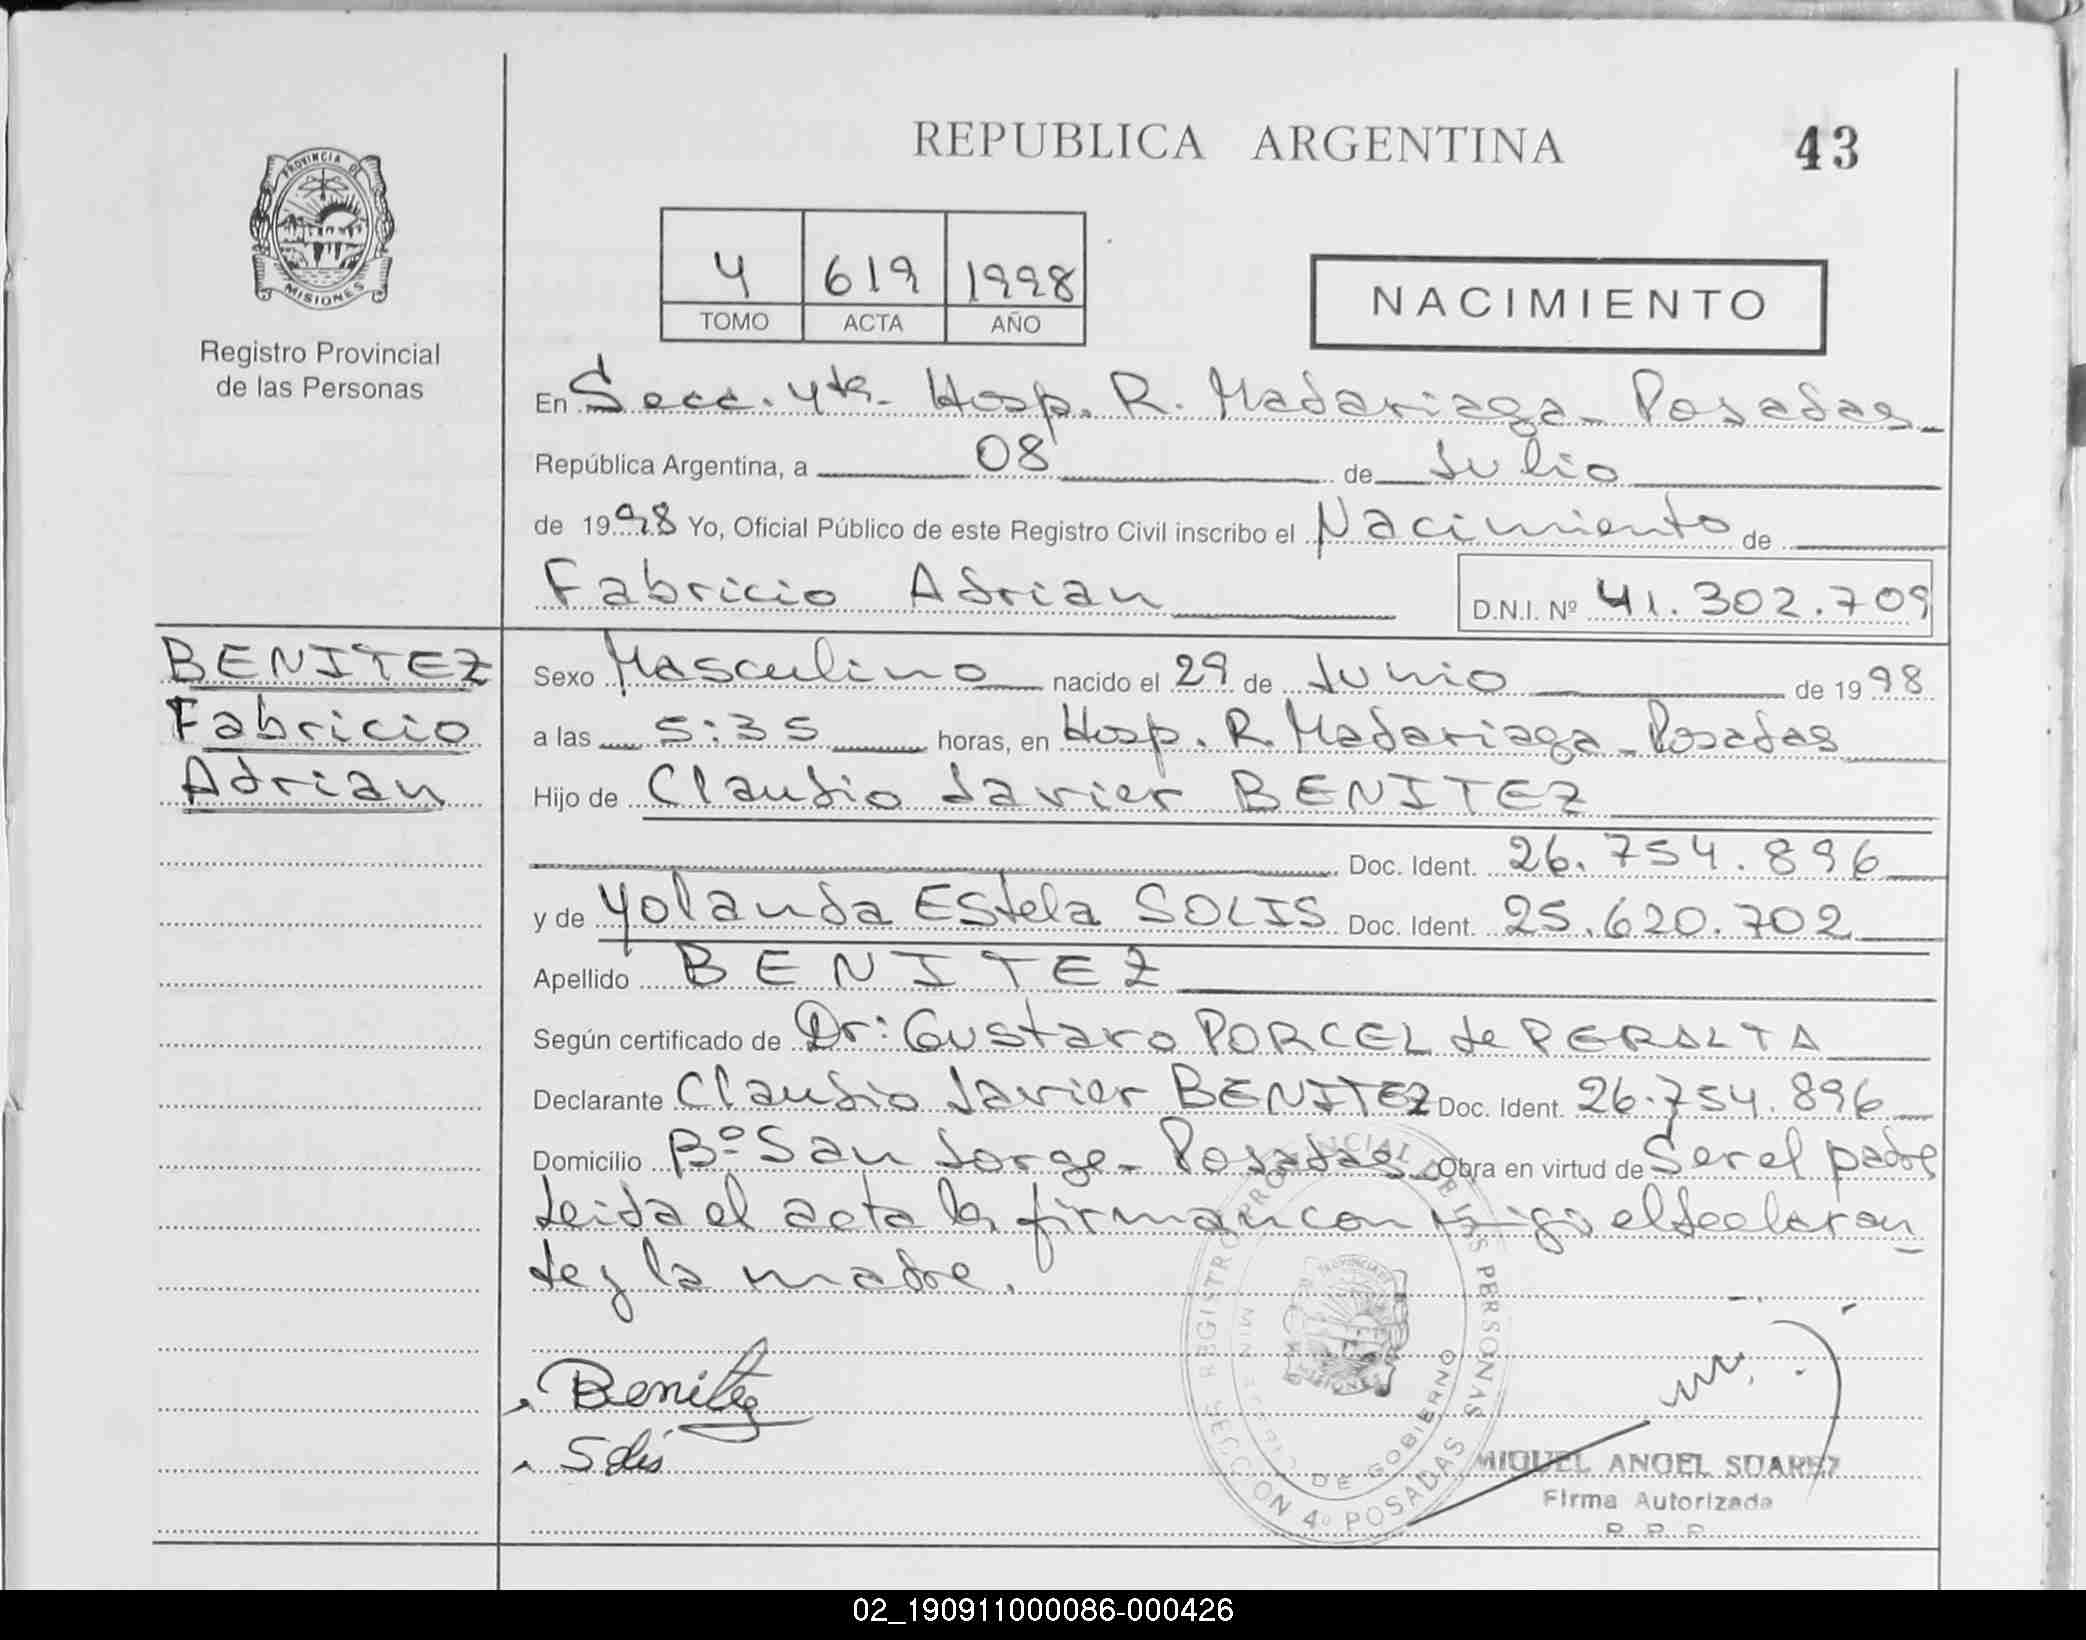 REPUBLICA ARGENTINA
43
PROVINCIA DE
MISIONES
Registro Provincial
de las Personas
4 619 1998
TOMO ACTA AÑO
NACIMIENTO
En Secc. 4ta. Hosp. R. Madariaga - Posadas
República Argentina, a 08 de Julio
de 1998 Yo, Oficial Público de este Registro Civil inscribo el Nacimiento de
Fabricio Adrian D.N.I. Nº 41.302.709
BENITEZ
Fabricio
Adrian
Sexo Masculino nacido el 29 de Junio de 1998
a las 5:35 horas, en Hosp. R. Madariaga - Posadas
Hijo de Claudio Javier BENITEZ
Doc. Ident. 26.754.896
y de Yolanda Estela SOLIS Doc. Ident. 25.620.702
Apellido BENITEZ
Según certificado de Dr: Gustavo PORCEL de PERALTA
Declarante Claudio Javier BENITEZ Doc. Ident. 26.754.896
Domicilio Bº San Jorge - Posadas - Obra en virtud de Ser el padre
Leida el acta la firman con migo el declaran
te y la madre.
Benitez
Solis
REGISTRO PROVINCIAL DE LAS PERSONAS
DE GOBIERNO
SECCION 4º POSADAS
MIGUEL ANGEL SUAREZ
Firma Autorizada
R. P. P.
02_190911000086-000426